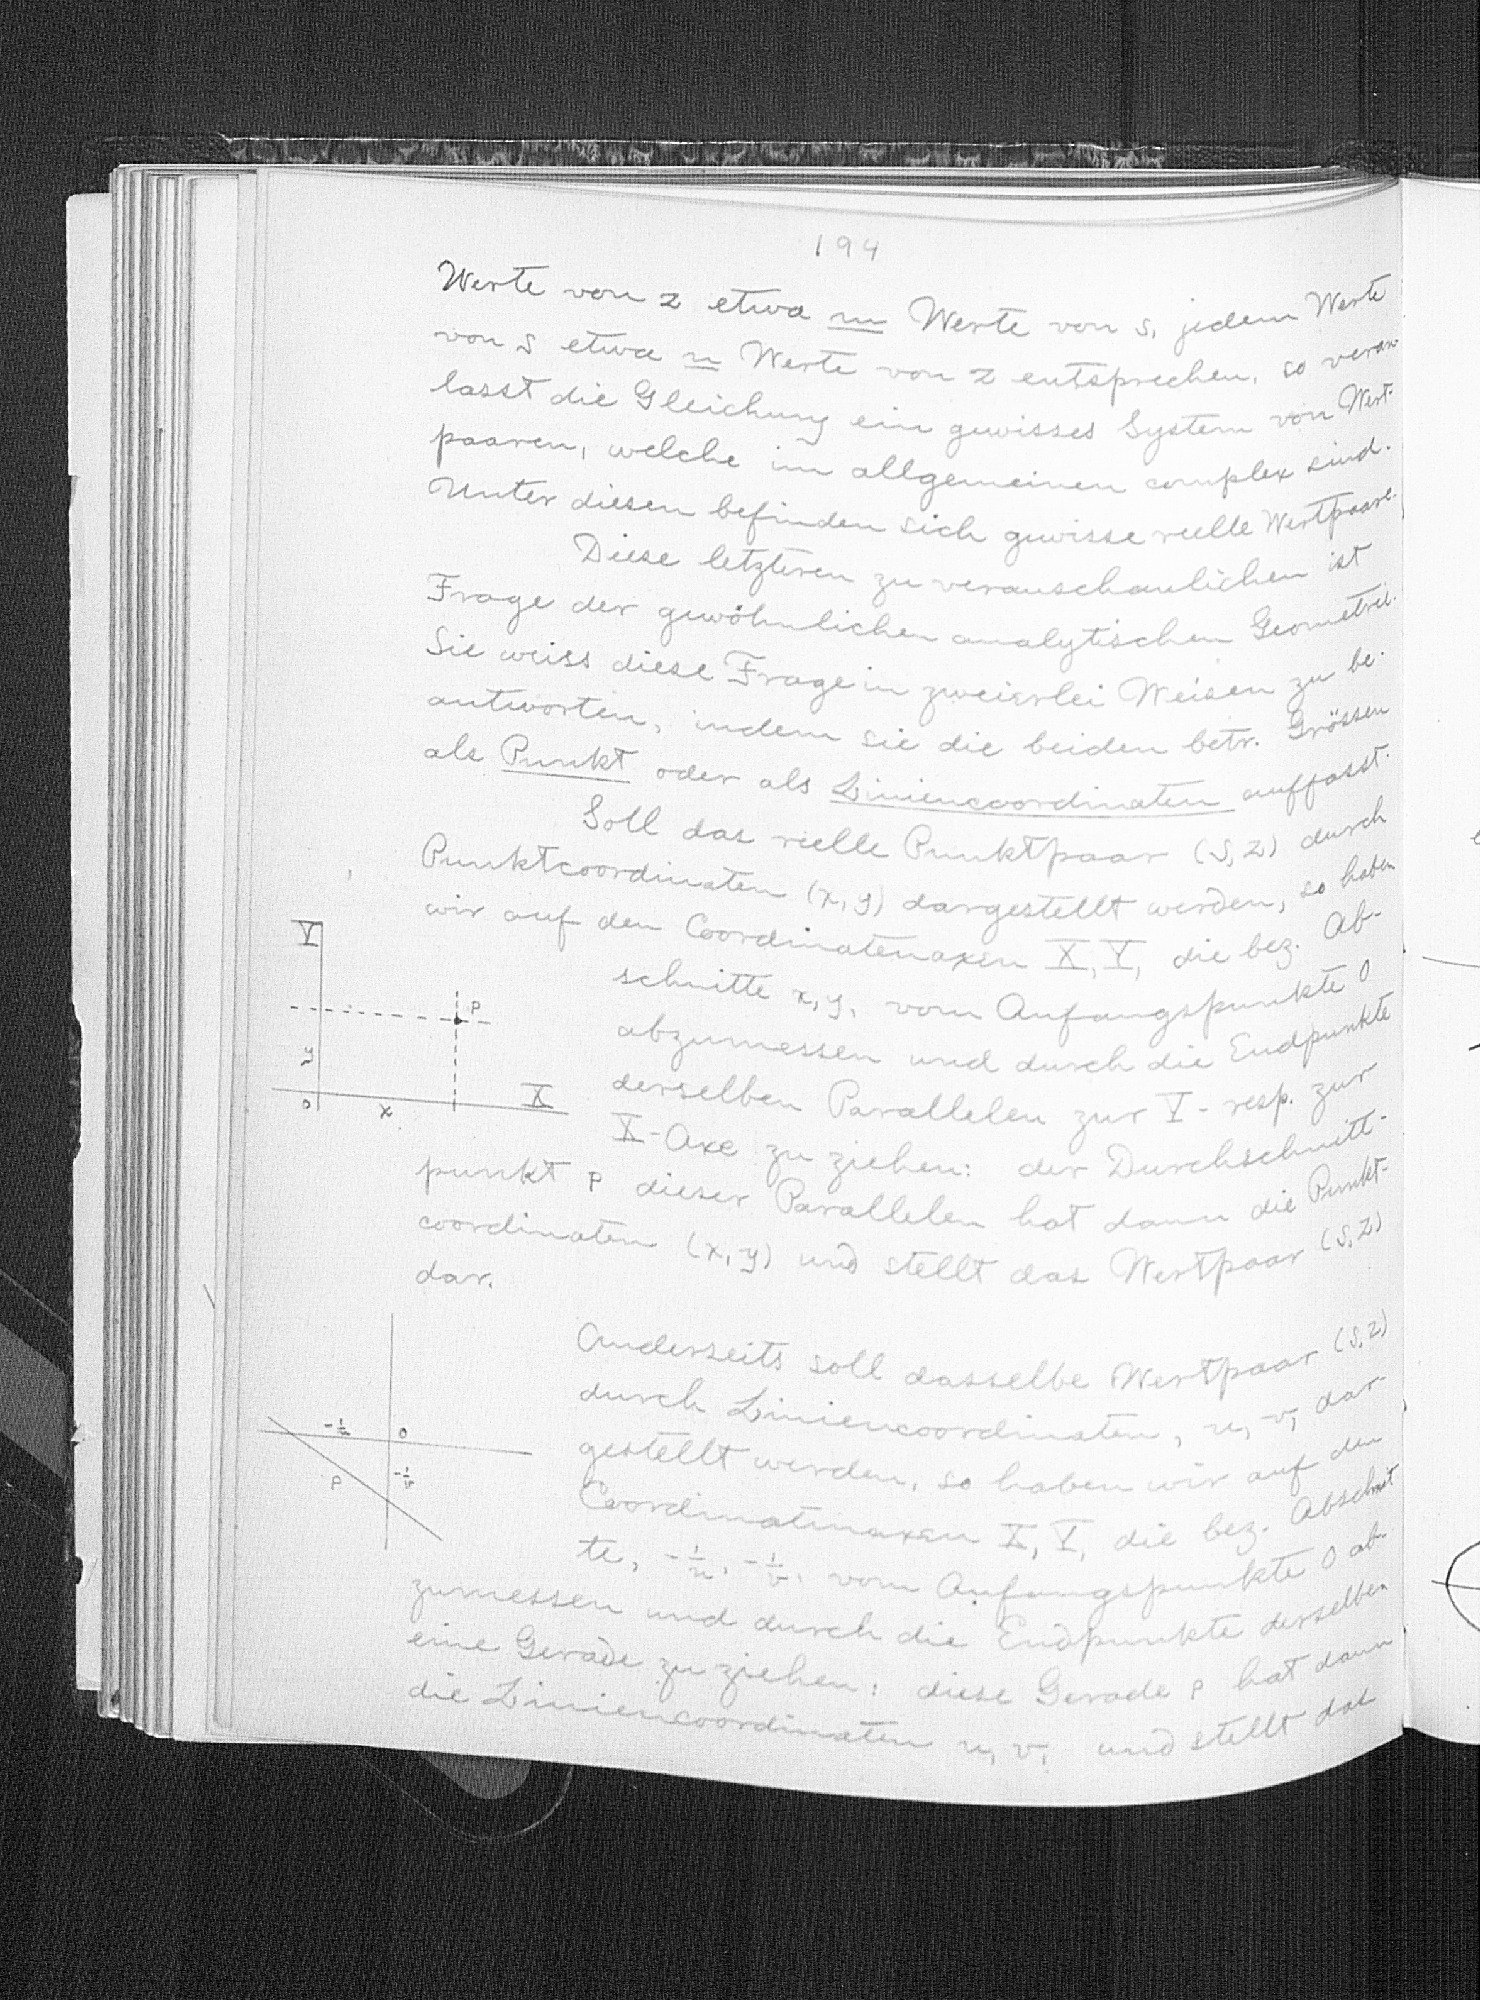 194
Werte von z etwa m Werte von s, jedem Werte
von s etwa n Werte von z entsprechen, so veran
lasst die Gleichung ein gewisses System von Wert-
paaren, welche im allgemeinen complex sind.
Unter diesen befinden sich gewisse reelle Wertpaare.
Diese letzteren zu veranschaulichen ist
Frage der gewöhnlichen analytischen Geometrie.
Sie weiss diese Frage in zweierlei Weisen zu be-
antworten, indem sie die beiden betr. Grössen
als Punkt oder als Liniencoordinaten auffasst.
Soll das reelle Punktpaar (s, z) durch
Punktcoordinaten (x, y) dargestellt werden, so haben
wir auf den Coordinatenaxen X, Y, die bez. Ab-
schnitte x, y, vom Anfangspunkte O
abzumessen und durch die Endpunkte
derselben Parallelen zur Y- resp. zur
X-Axe zu ziehen: der Durchschnitt-
punkt p dieser Parallelen hat dann die Punkt-
coordinaten (x, y) und stellt das Wertpaar (s, z)
dar.
Y
p
y
X
o
x
Anderseits soll dasselbe Wertpaar (s, z)
durch Liniencoordinaten, u, v, dar-
gestellt werden, so haben wir auf den
Coordinatenaxen X, Y, die bez. Abschnit
te, -1/u, -1/v, vom Anfangspunkte O ab-
zumessen und durch die Endpunkte derselben
eine Gerade zu ziehen: diese Gerade p hat dann
die Liniencoordinaten u, v, und stellt das
-1/u
o
-1/v
p